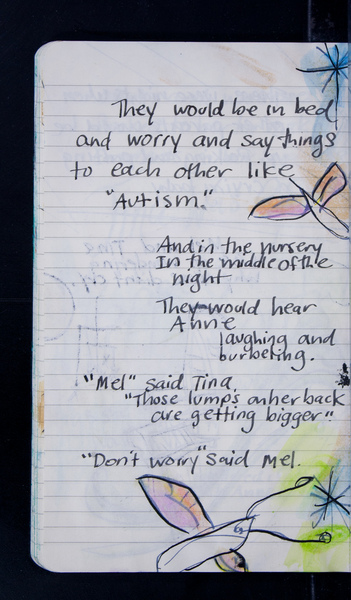 They would be in bed
and worry and say things
to each other like
"Autism."
And in the nursery
In the middle of the
night
They would hear
Anne
laughing and
burbeling.
"Mel" said Tina,
"Those lumps on her back
are getting bigger"
"Don't worry" said Mel.